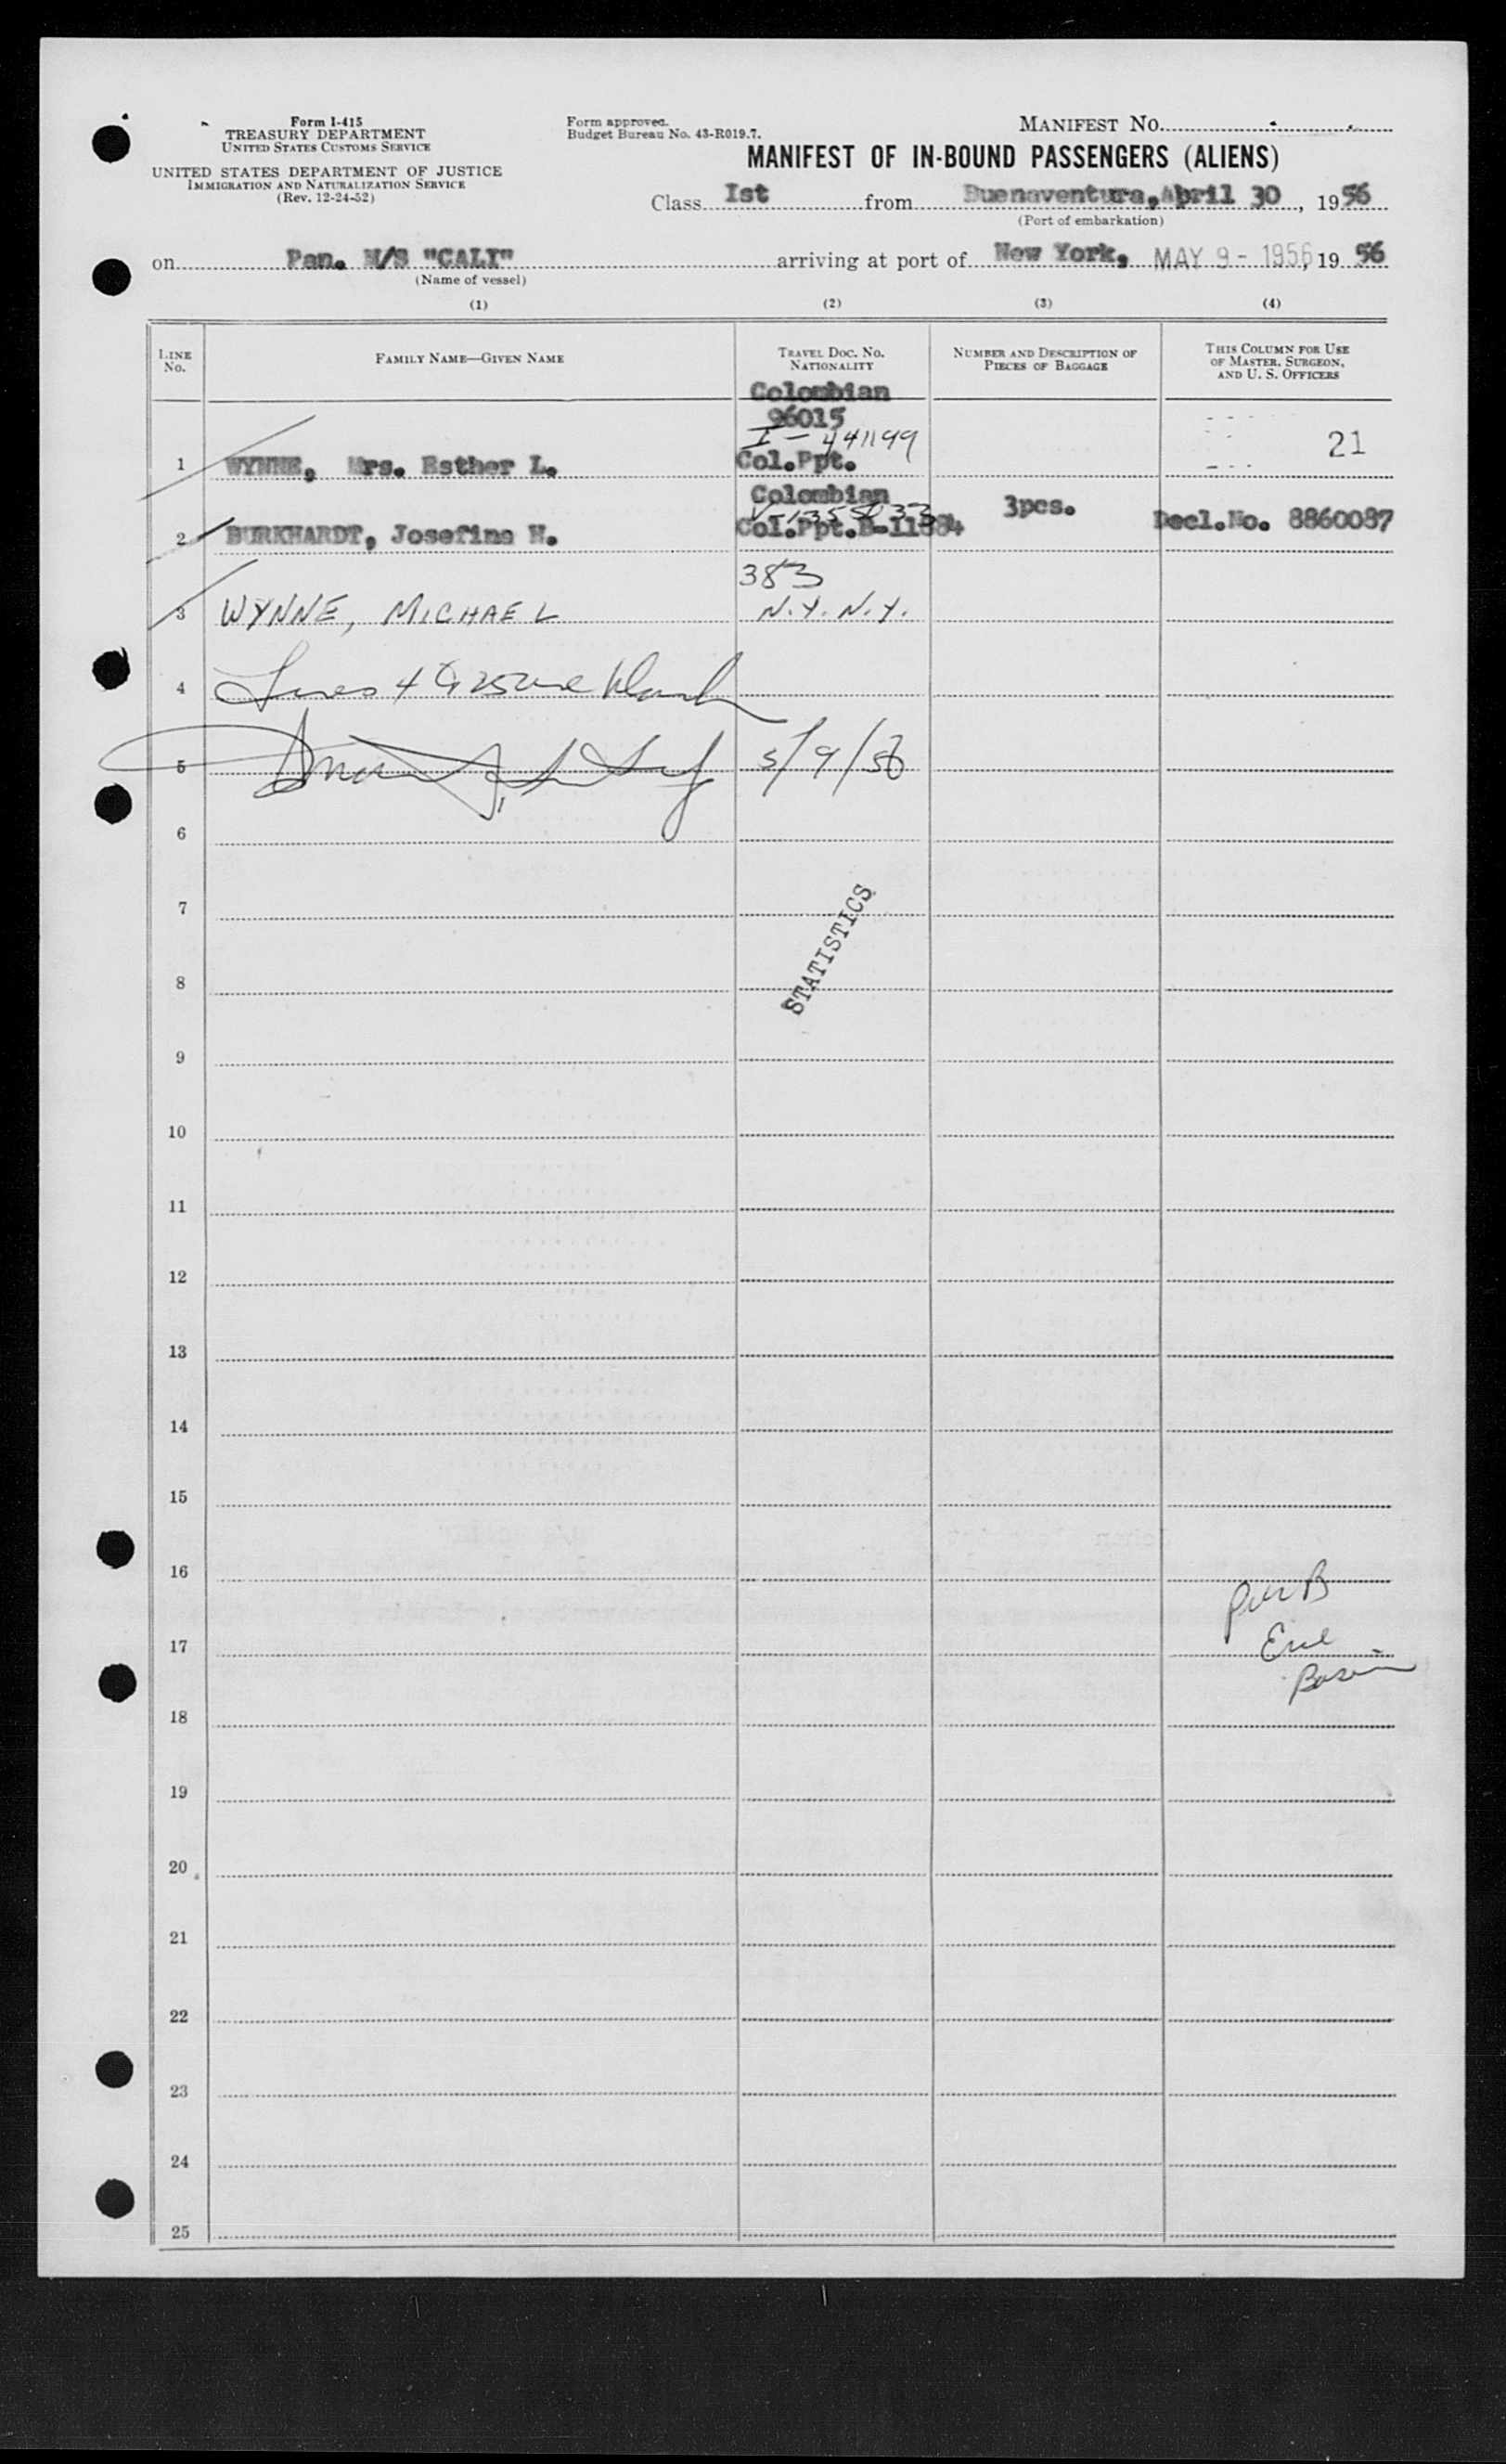 Form I-415
TREASURY DEPARTMENT
UNITED STATES CUSTOMS SERVICE
UNITED STATES DEPARTMENT OF JUSTICE
IMMIGRATION AND NATURALIZATION SERVICE
(Rev. 12-24-52)
Form approved.
Budget Bureau No. 43-R019.7.
MANIFEST NO.
MANIFEST OF IN-BOUND PASSENGERS (ALIENS)
Class Ist from Buenaventura, April 30, 1956
(Port of embarkation)
on Pan. M/S "CALI" arriving at port of New York, MAY 9 - 1956, 19 56
(Name of vessel)
(1) (2) (3) (4)
LINE No. FAMILY NAME—GIVEN NAME TRAVEL DOC. NO. NATIONALITY NUMBER AND DESCRIPTION OF PIECES OF BAGGAGE THIS COLUMN FOR USE OF MASTER, SURGEON, AND U. S. OFFICERS
Colombian
96015
I-441199
1 WYNNE, Mrs. Esther L. Col.Ppt. 21
Colombian
2 BURKHARDT, Josefina H. Col.Ppt. 3pcs. Decl.No. 8860087
383
3 WYNNE, MICHAEL N.Y. N.Y.
4 Lines 4 25 Blank
5 5/9/56
6
7
STATISTICS
8
9
10
11
12
13
14
15
16
Pier B
17 Erie
Basin
18
19
20
21
22
23
24
25